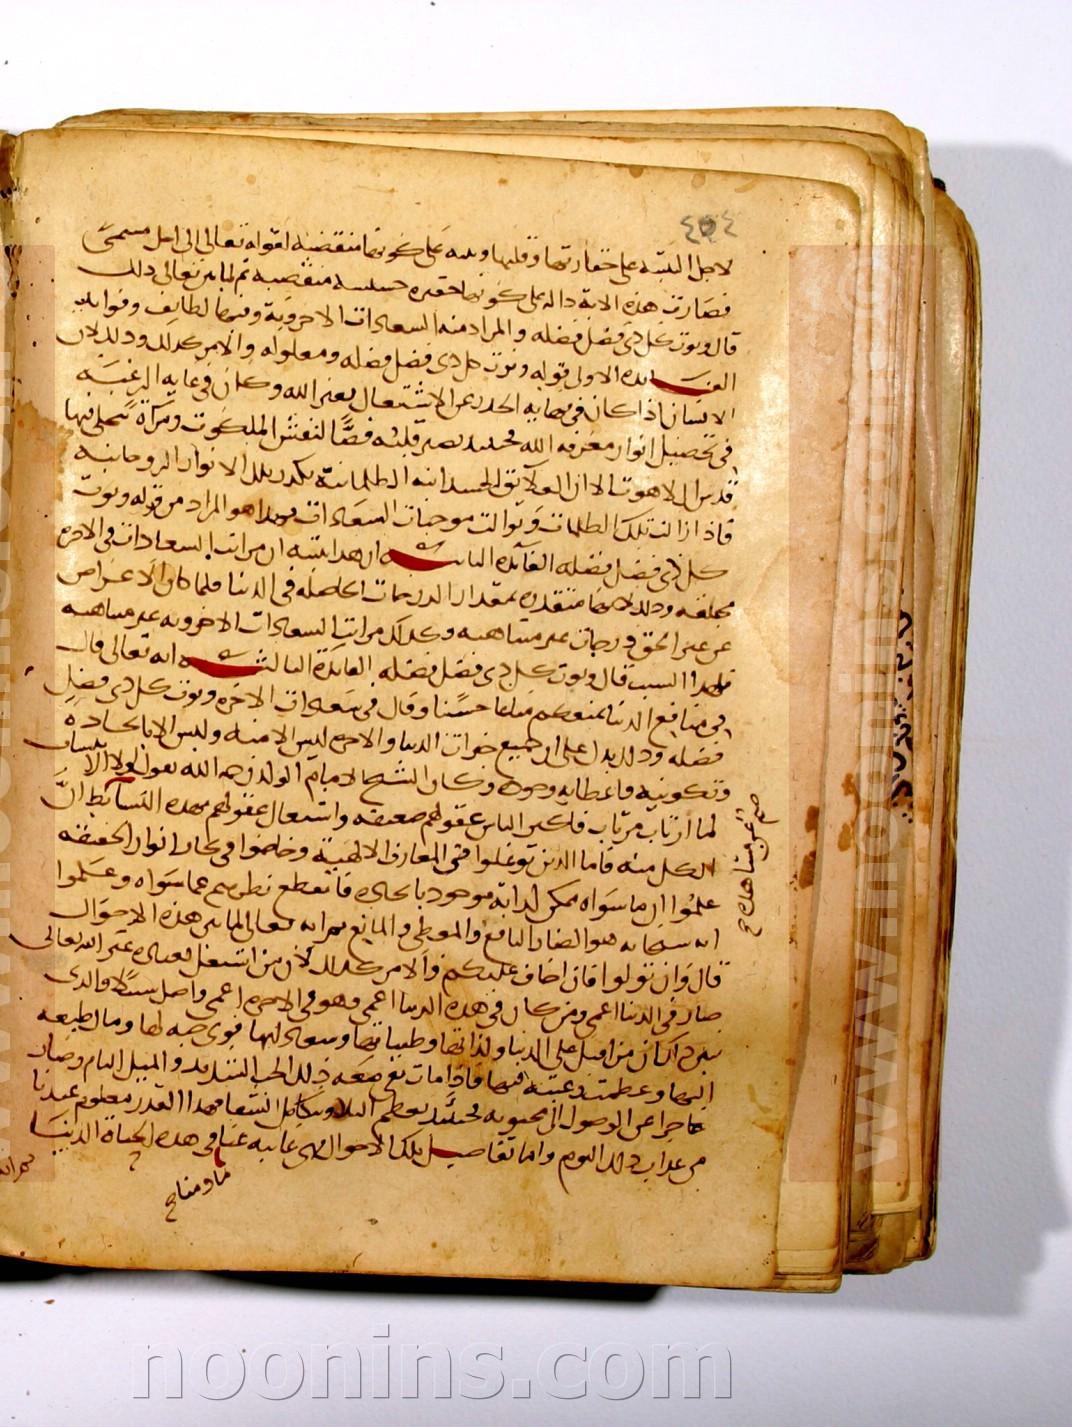 ٤٥٤
لاجل التنبيه على حقارتها وقلتها ونبه على كونها منقضية لقوله تعالى الى اجل مسمى
فصارت هذه الاية دالة على كونها حقيرة خسيسة منقضية ثم لما بين تعالى ذلك
قال ويوت كل ذى فضل فضله والمراد منه السعادات الاخروية وفيها لطايف وفوايد
الفائدة الاولى قوله ويوت كل ذى فضل فضله ومعلوله والامر كذلك وذلك لان
الانسان اذا كان فى نهاية البعد عن الاشتغال بغير الله وكان فى غاية الرغبة
فى تحصيل انوار معرفة الله فحينئذ يصير قلبه فصا لنقش الملكوت ومرآة يتجلى فيها
قدس اللاهوت الا ان العلايق الجسدانية الظلمانية تكدر تلك الانوار الروحانية
فاذا زالت تلك الظلمات وتوالت موجبات السعادات فهذا هو المراد من قوله ويوت
كل ذى فضل فضله الفائدة الثانية ان هذا تنبيه ان مراتب السعادات فى الاخرة
مختلفة وذلك لانها متقدرة بمقدار الدرجات الحاصلة فى الدنيا فلما كان الاعراض
عن غير الحق درجات غير متناهية وكذلك مراتب السعادات الاخروية غير متناهية
فلهذا السبب قال ويوت كل ذى فضل فضله الفائدة الثالثة انه تعالى قال
فى منافع الدنيا يمتعكم متاعا حسنا وقال فى سعادات الاخرة ويوت كل ذى فضل
فضله وذلك يدل على ان جميع خيرات الدنيا والاخرة ليس الا منه وليس الا بايجاده
وتكوينه واعطايه وجوده وكان الشيخ الامام الوالد رحمه الله يقول لولا الاسباب
لما ارتاب مرتاب فاكثر الناس عقولهم ضعيفة واشتغال عقولهم بهذه الوسائط ان
الكل منه فاما الذين توغلوا فى المعارف الالهية وخاضوا فى بحار انوار الحقيقة
علموا ان ما سواه ممكن لذاته موجود بايجاده فانقطع نظرهم عما سواه وعلموا
انه سبحانه هو الضار النافع والمعطى والمانع ثم انه تعالى لما بين هذه الاحوال
قال وان تولوا فانى اخاف عليكم والامر كذلك لان من اشتغل بعبادة غير الله تعالى
صار فى الدنيا اعمى ومن كان فى هذه الدنيا اعمى فهو فى الاخرة اعمى واضل سبيلا والذى
يبين ذلك ان من اقبل على الدنيا ولذاتها وطيباتها وسعادتها قوى حبه لها ومال طبعه
اليها وعظمت رغبته فيها فاذا مات بقى معه ذلك الحب الشديد والميل التام وصار
عاجزا عن الوصول الى محبوبه فحينئذ يعظم البلا ويتكامل الشقا فهذا القدر معلوم عندنا
من عذاب ذلك اليوم واما تفاصيل تلك الاحوال فهى غائبة عنا فى هذه الحياة الدنيا